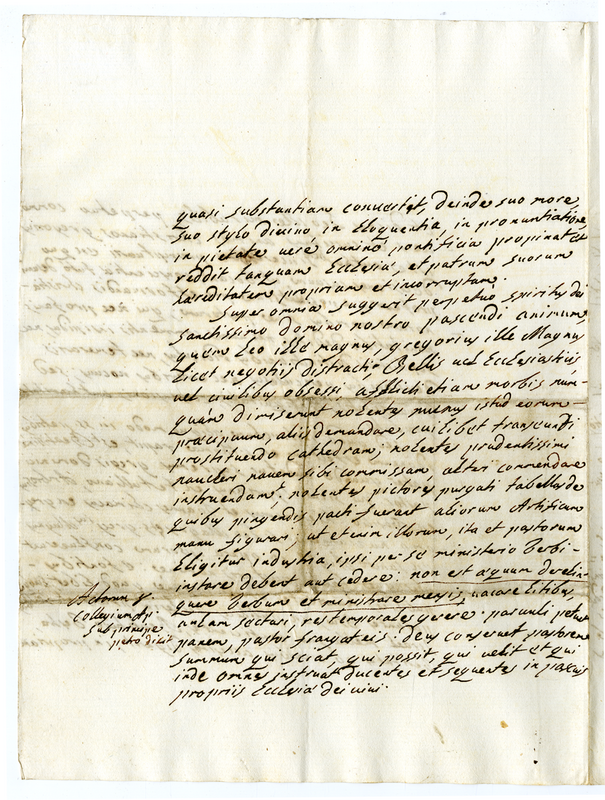 quasi substantiam convertit, deinde suo more,
suo stylo divino in Eloquentia, in pronuntiatione,
in pietate verè omninò pontificia propinat et
reddit tanquam Ecclesiæ, et patrum suorum
hæreditatem propriam et incorruptam.
Super omnia suggerit perpetuò spiritus dei
sanctissimo domino nostro pascendi animum,
quem leo ille magnus, gregorius ille Magnus
licet negotijs distracti, Bellis vel Ecclesiasticis
vel civilibus obsessi, afflicti etiam morbis nun-
quàm dimiserunt nolentes munus istud eorum
præcipuum, alijs demandare, cuilibet transeunti
prostituendo cathedram; nolentes prudentissimi
naucleri navem sibi commissam alteri commendare
instruendam, nolentes pictores purgati tabellas de
quibus pingendis pacti fuerant aliorum Artificum
manu figurari, ut etenim illorum, ita et pastorum
Eligitur industria, ipsi per se ministerio verbi
instare debent aut cedere: non est æquum derelin-
quere verbum et ministrare mensis, vacare litibus,
aulam sectari, res temporales gerere. parvuli petunt
panem, pastor frangat eis. deus conservet pastorem
summum qui sciat, qui possit, qui velit et qui
inde omnes instruat ducentes et sequentes in pascuis
propriis Ecclesiæ dei vivi.
Actorum 6.
Collegium Apl.
sub principe
petro dixit